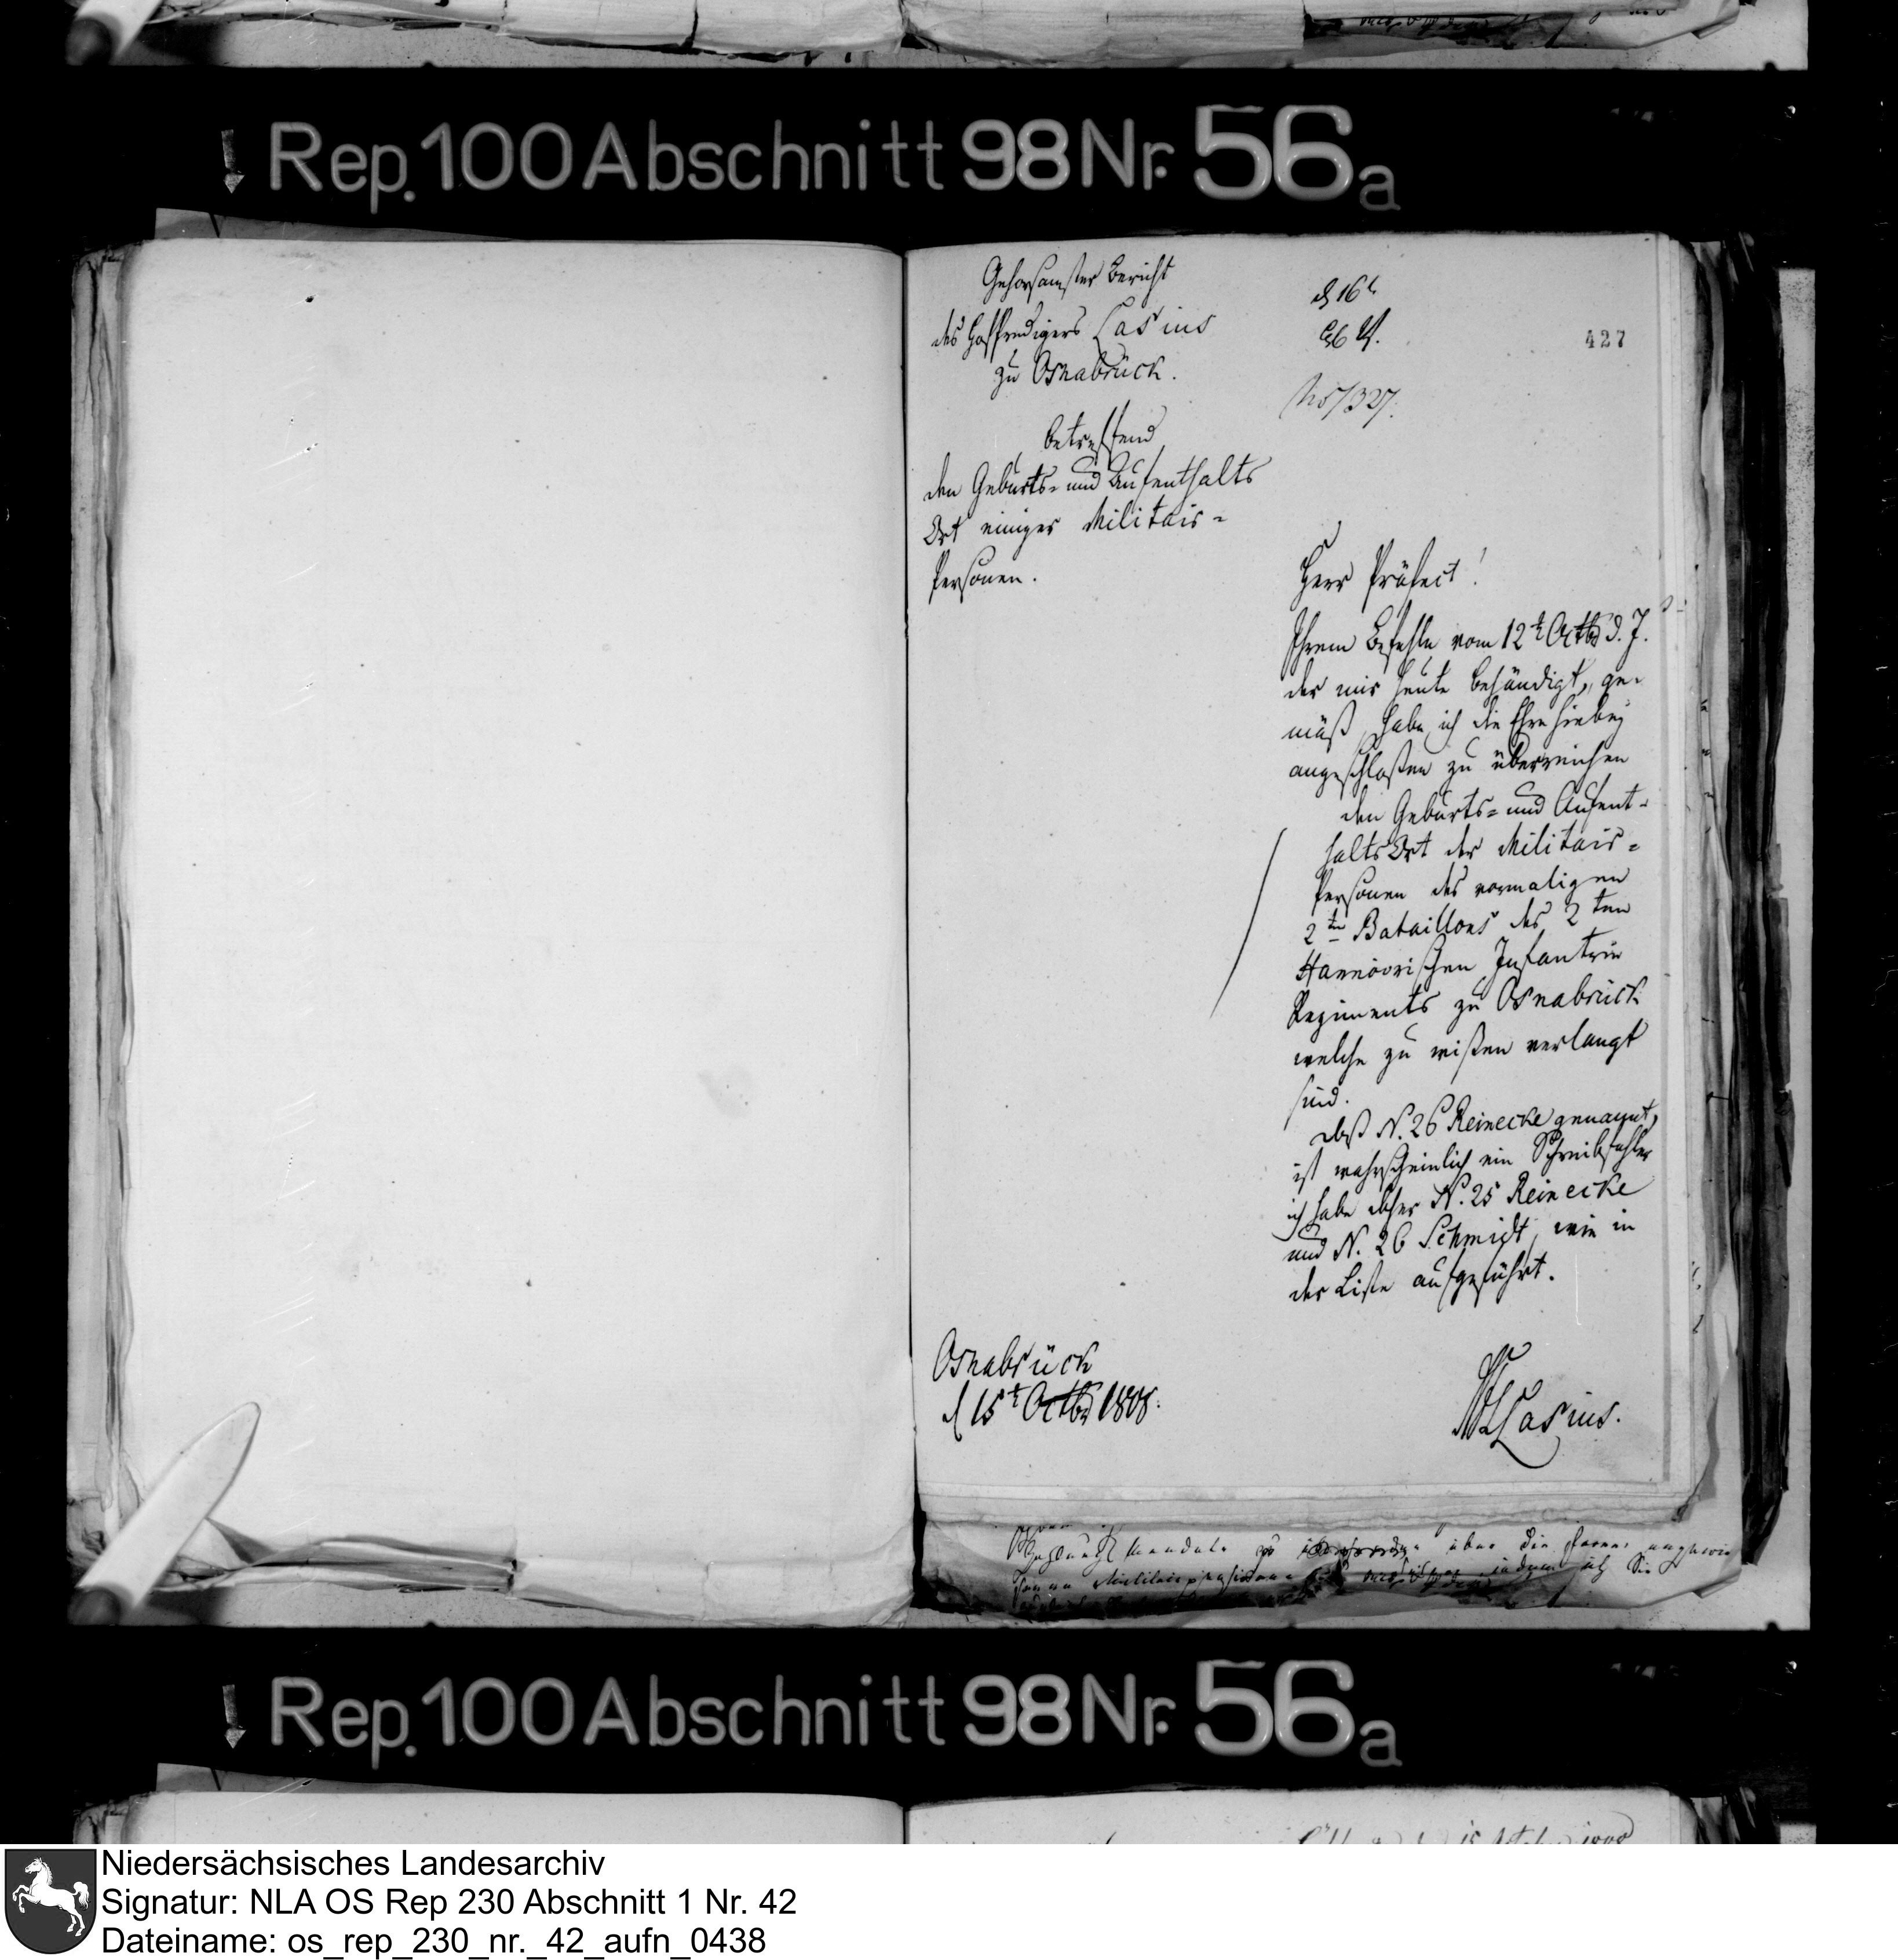 Rep. 100 Abschnitt 98 Nr. 56a
Gehorsamster Bericht
des Hofpredigers Lasius
zu Osnabrück.
betreffend
den Geburts= und Aufenthalts
Ort einiger Militair=
Personen.
427
Herr Präfect!
Ihrem Befehle vom 12t Octbr d. J.
der mir heute behändigt, ge-
mäß, habe ich die Ehre hiebey
angeschloßen zu überreichen
den Geburts= und Aufent-
halts Ort der Militair=
Personen des vormaligen
2ten Bataillons des 2ten
Hannövrischen Infanterie
Regiments zu Osnabrück
welche zu wißen verlangt
sind.
daß N. 26 Reinecke genannt,
ist wahrscheinlich ein Schreibfehler
ich habe daher N. 25 Reinecke
und N. 26 Schmidt, wie in
der Liste aufgeführt.
Osnabrück
d 15t Octbr 1808.
Lasius.
Rep. 100 Abschnitt 98 Nr. 56a
Niedersächsisches Landesarchiv
Signatur: NLA OS Rep 230 Abschnitt 1 Nr. 42
Dateiname: os_rep_230_nr._42_aufn_0438